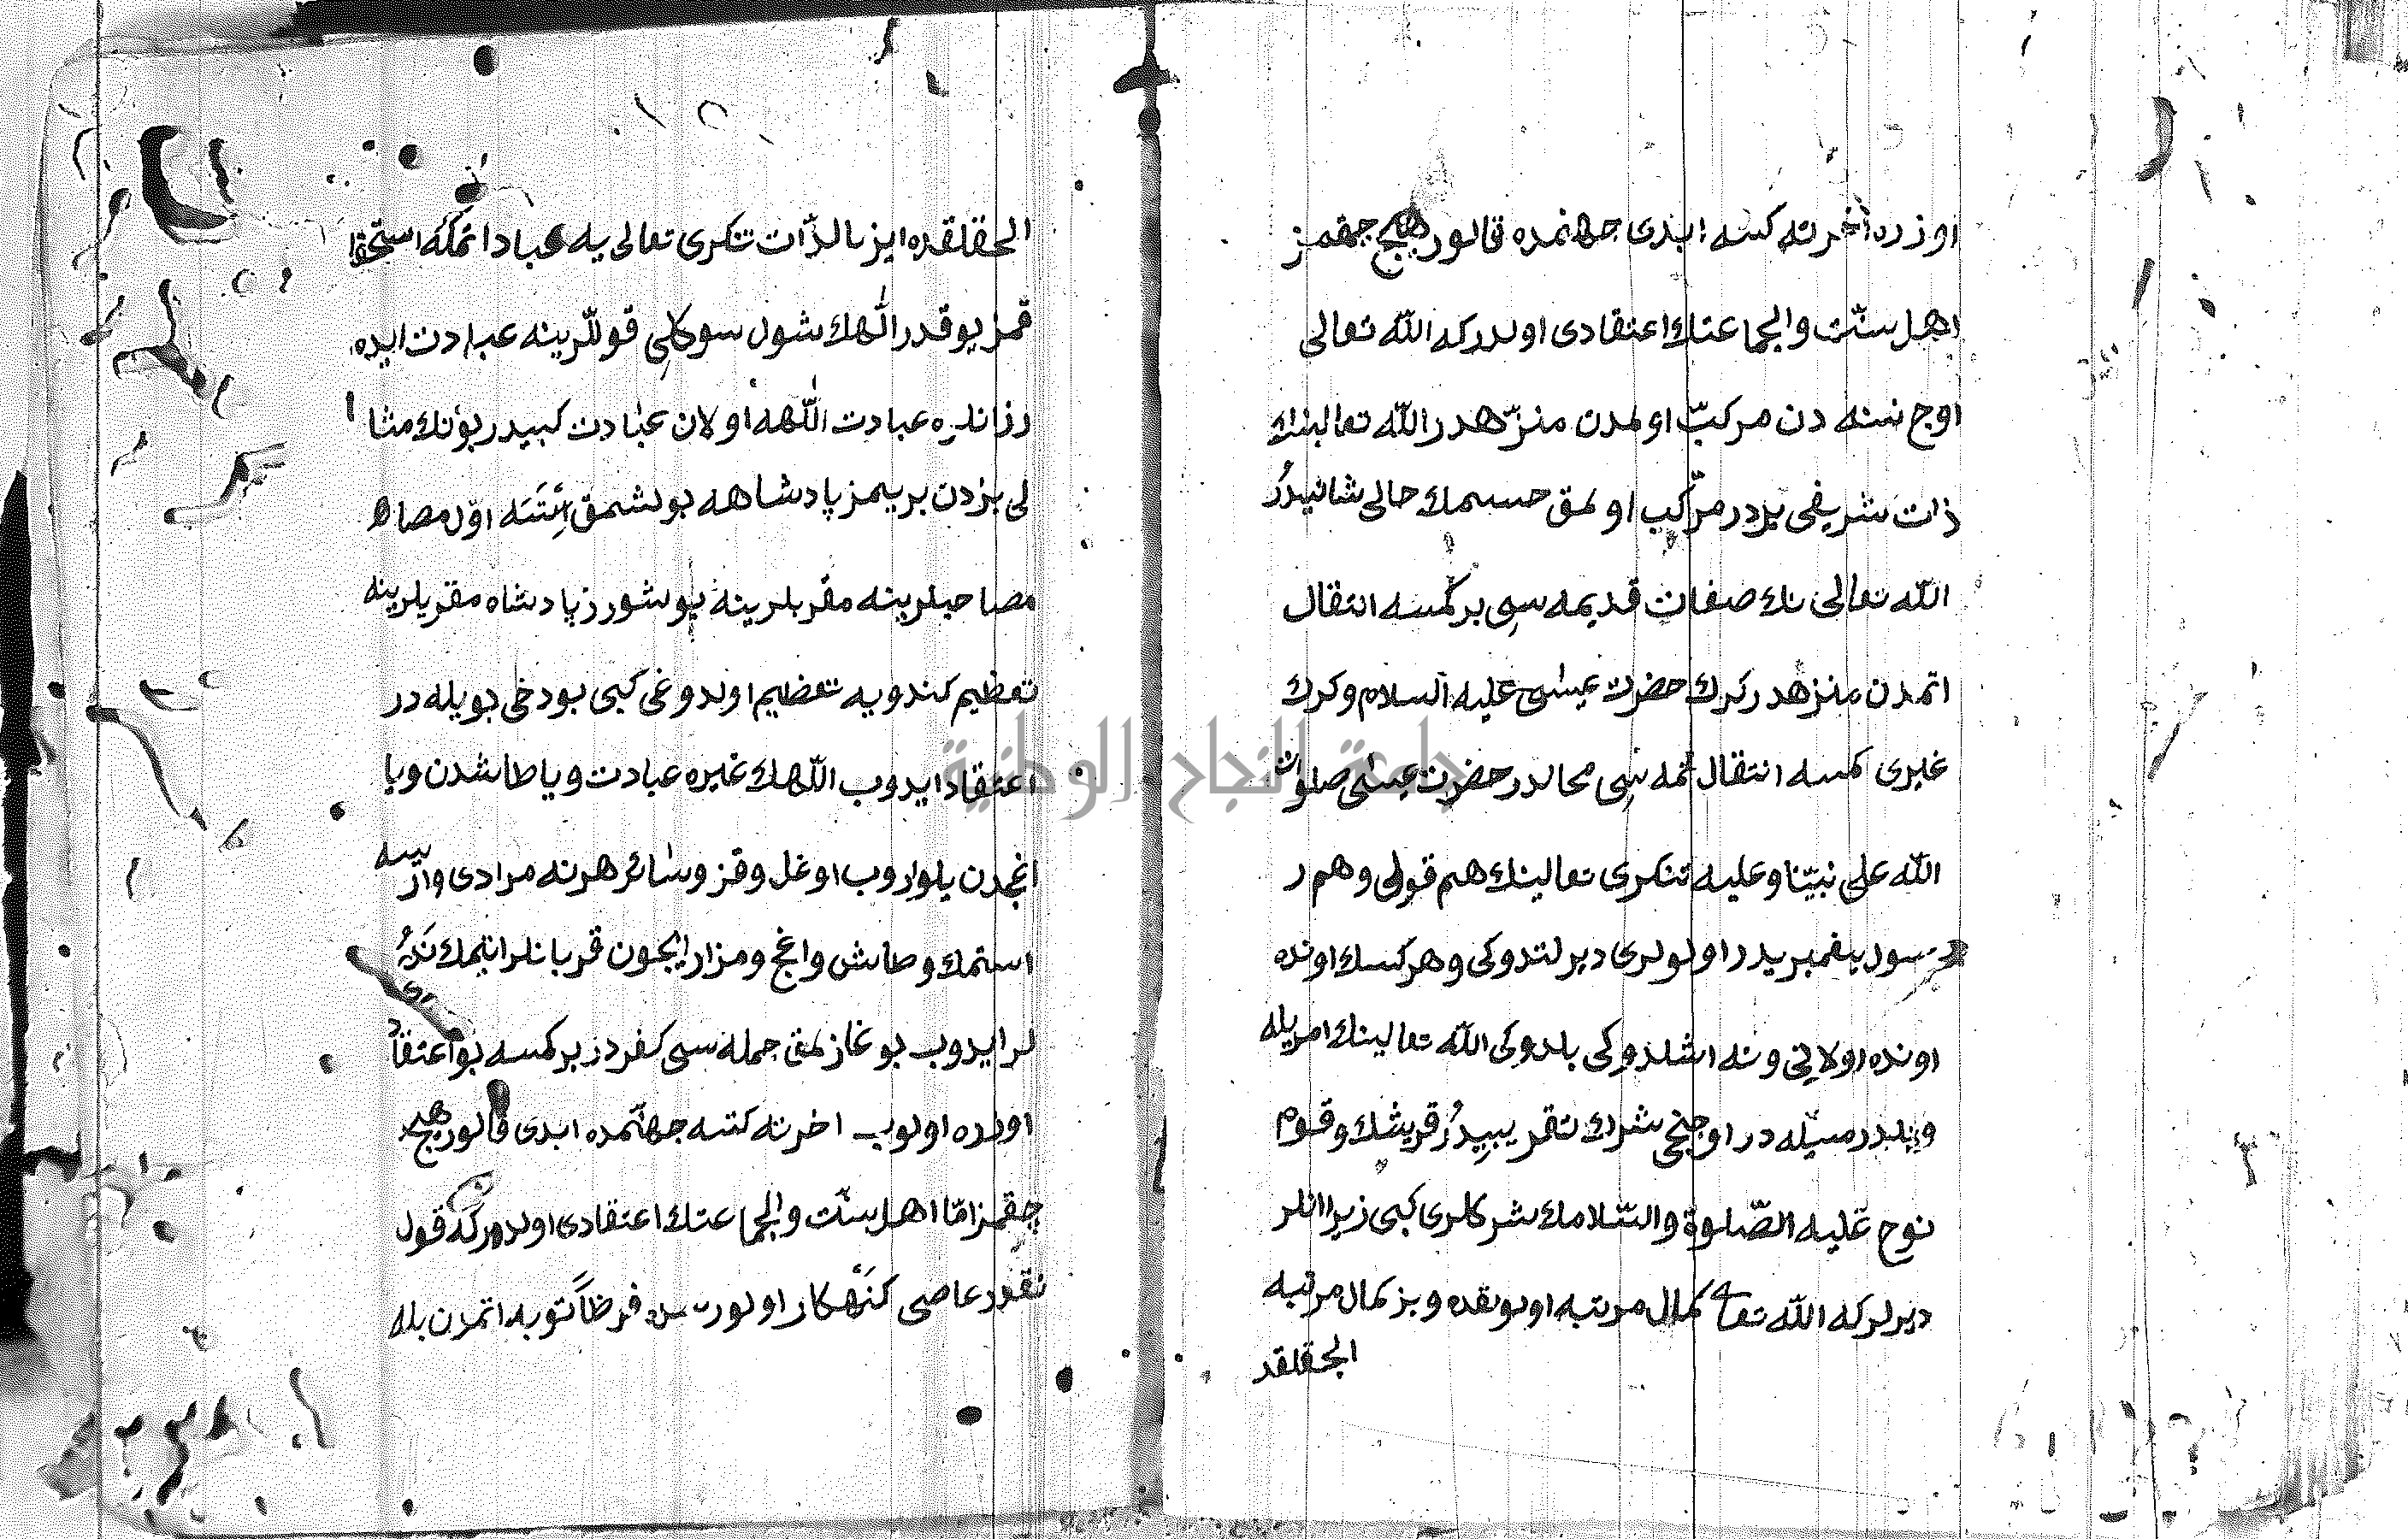 اوزره آخرته كتسه ابدى جهنمده قالور هيچ چقمز
اهل سنّت والجماعتك اعتقادى اولدركه اللّه تعالى
اوج نسنه دن مركبّ اولمدن منزّهدر اللّه تعالينك
ذات شريفى بردر مرّكب اولمق جسمك حالى شانيدُر
اللّه تعالى نك صفات قديمه سى بر كمسه انتقال
اتمدن منزهدر كرك حضرت عيسٰى عليه السلام وكرك
غيرى كمسه انتقال اتمه سى محالدر حضرت عيسٰى صلوات
اللّه على نبيّنا وعليه تنكرى تعالينك هم قولى وهم ر
سول پيغمبريدر اولولرى ديرلتدوكى وهركسك اونده
اونده اولانى ونه اشلدوكى بلدوكى اللّه تعالينك امريله
وبلدرمسيله در اوجنجى شرك تقريبيدُر قريشك وقوم
نوح عليه الصّلوة والسّلامك شركلرى كبى زيرا انلر
ديرلركه اللّه تعا كمال مرتبه اولوقده وبز كمال مرتبه
الچقلقد
الچقلقده ايز بالذّات تنكرى تعالى يه عبادا تمكه استحقا
قمز يوقدر اللّهك شول سوكلى قوللّرينه عبادت ايده
رز انلره عبادت اللّهه اولان عبادت كبيدر بونك مثا
لى بزدن بريمز پادشاهه بولشمق اِسْتَسَه اوّل مصاه
مصاحبلرينه مقربلرينه بولشورز پادشاه مقربلرينه
تعظيم كندويه تعظيم اولدوغى كبى بودخى بويله در
اعتقاد ايدوب اللّهك غيره عبادت ويا طاشدن ويا
اغجدن يلواروب اوغل وقز وسٰائر هرنه مرادى وارسه
استمك وطاش واغج ومزار ايچون قربانلر ايتمك نَذرُ
لر ايدوب بوغازلمق جمله سى كفردر بر كمسه بو اعتقاد
اوزره اولوب اخرته كتسه جهنّمده ابدى قالور هيچ
چقمز امّا اهل سنّت والجماعتك اعتقادى اولدركه قول
نقدر عاصى كنَهكار اولورسه فرظاً توبه اتمدن بله
جامعة النجاح الوطنية